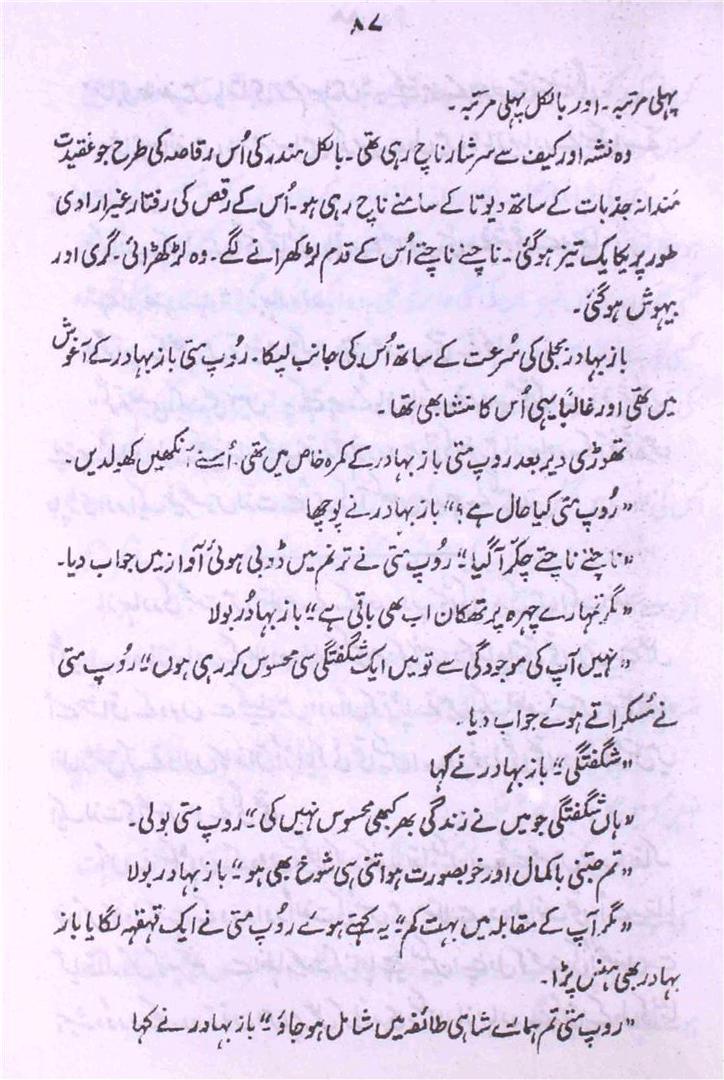 ۸۷
پہلی مرتبہ۔ اور بالکل پہلی مرتبہ۔
وہ نشہ اور کیف سے سرشار ناچ رہی تھی۔ بالکل مندر کی اُس رقاصہ کی طرح جو عقیدت
مندانہ جذبات کے ساتھ دیوتا کے سامنے ناچ رہی ہو۔ اُس کے رقص کی رفتار غیر ارادی
طور پر یکایک تیز ہوگئی۔ ناچتے ناچتے اُس کے قدم لڑکھرانے لگے۔ وہ لڑکھڑائی۔ گری اور
بیہوش ہوگئی۔
باز بہادر بجلی کی سُرعت کے ساتھ اُس کی جانب لپکا۔ رُوپ متی باز بہادر کے آغوش
میں تھی اور غالباً یہی اس کا منشا بھی تھا۔
تھوڑی دیر بعد روپ متی باز بہادر کے کمرہ خاص میں تھی۔ اُسنے آنکھیں کھولدیں۔
”رُوپ متی کیا حال ہے؟“ باز بہادر نے پوچھا
”ناچتے ناچتے چکّر آگیا“ رُوپ متی نے ترنم میں ڈوبی ہوئی آواز میں جواب دیا۔
”مگر تمہارے چہرہ پر تھکان اب بھی باقی ہے“ باز بہادُر بولا
”نہیں آپ کی موجودگی سے تو میں ایک شگفتگی سی محسوس کر رہی ہوں“ رُوپ متی
نے مُسکراتے ہوئے جواب دیا۔
”شگفتگی“ باز بہادر نے کہا
”ہاں شگفتگی جو میں نے زندگی بھر کبھی محسوس نہیں کی“ رُوپ متی بولی۔
”تم جتنی باکمال اور خوبصورت ہو اتنی ہی شوخ بھی ہو“ باز بہادر بولا
”مگر آپ کے مقابلہ میں بہت کم“ یہ کہتے ہوئے رُوپ متی نے ایک قہقہہ لگایا باز
بہادر بھی ہنس پڑا۔
”روپ متی تم ہمارے شاہی طائفہ میں شامل ہو جاؤ“ باز بہادر نے کہا